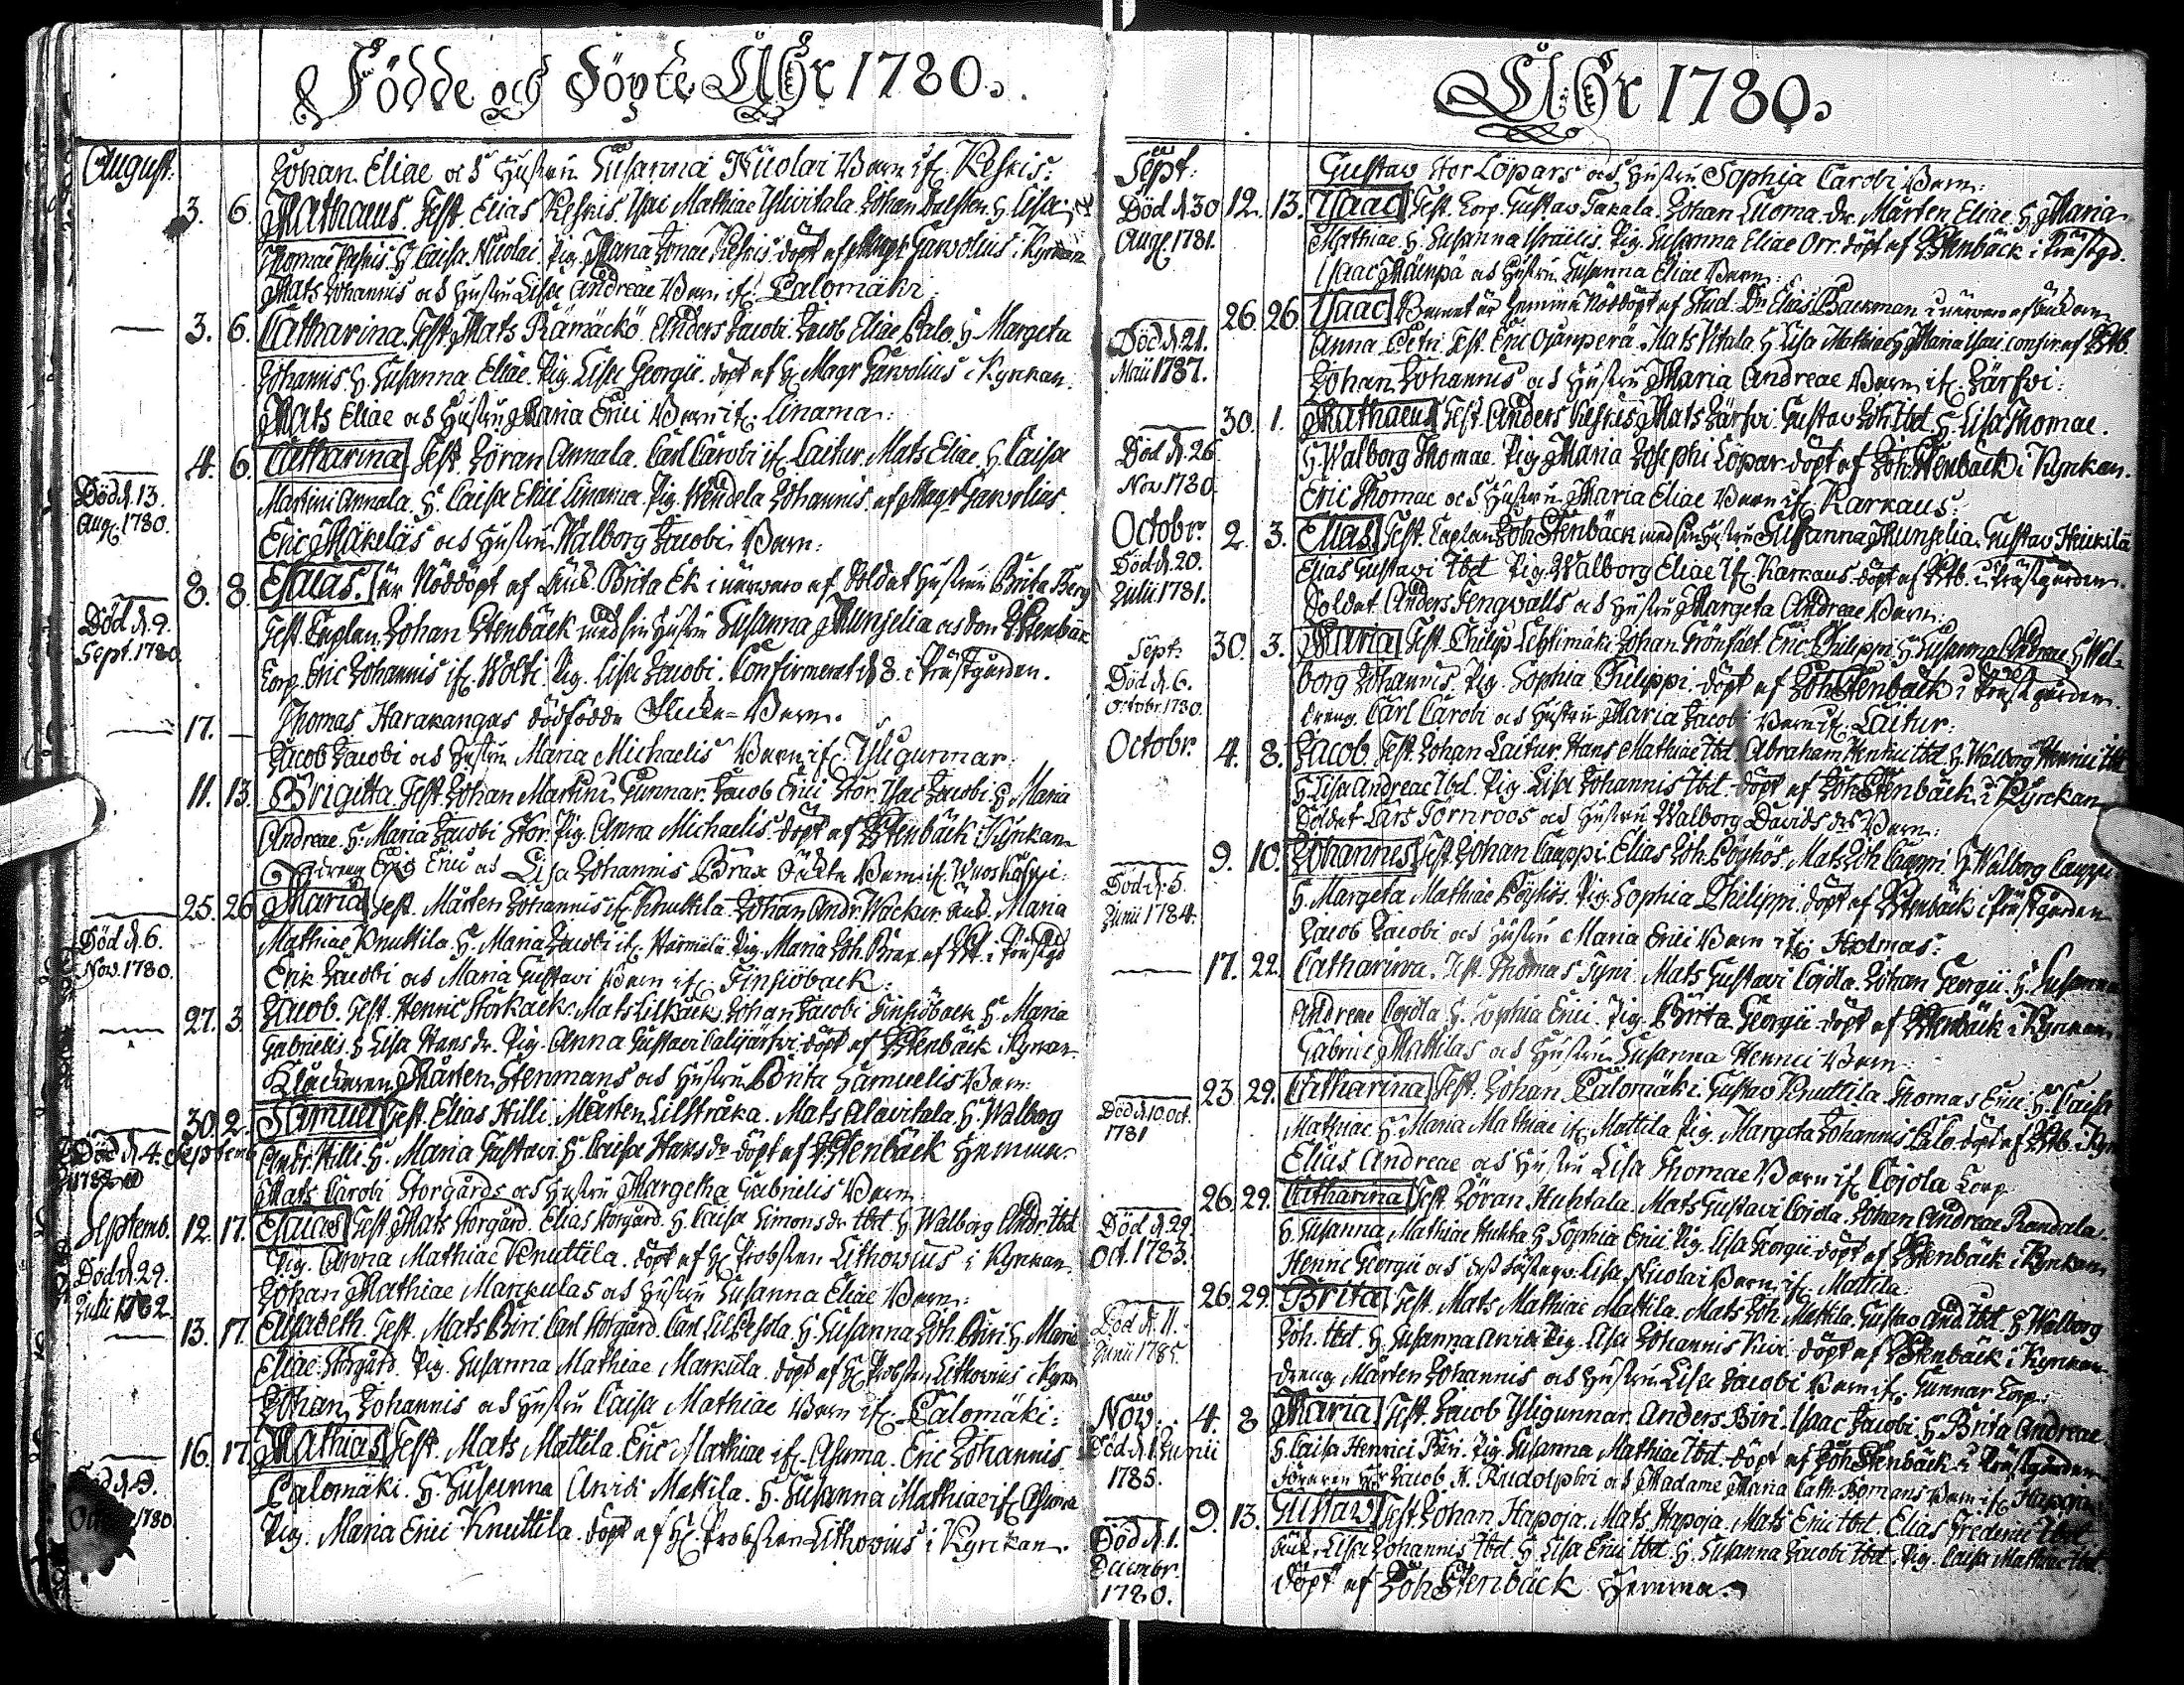 Födde och Döpte Åhr 1780.
August:
Johan Eliae och Hustru Susanna Nicolai Barn if. Keskis:
3. 6. Mathaeus. Test. Elias Keskis. Isai Mathiae Ylivitala. Johan H. Lisa
Thomae Keskis. H. Caisa Nicolai. Pig. Maria Jonae Keskis. döpt af Magr Garvolius i Kyrkan
Mats Johannis och Hustru Lisa Andreae Barn if. Palomäki:
3. 6. Catharina. Test. Mats Rämäckö. Anders Jacobi. Jacob Eliae Palo. H. Margeta
Johannis. H. Susanna Eliae. Pig. Lisa Georgii. döpt af H. Magr Garvolius i Kyrkan.
Mats Eliae och Hustru Maria Erici Barn if. Linama:
4. 6. Catharina Test. Jöran Annala. Carl Caroli if. Laitur. Mats Eliae. H. Caisa
Död d. 13. Aug. 1780.
Martini Annala. H. Caisa Erici Linama. Pig. Wendela Johannis. af Magr Garvolius.
Eric Mäkeläs och Hustru Walborg Jacobi Barn:
8. 8. Esaias. är Nöddöpt af Brita Ek i närvaro af Soldat Hustrun Brita Berg
Död d. 9. Sept. 1780
Test. Caplan Johan Stenbäck med sin Hustru Susanna Munselia
Corp. Eric Johannis if. Wolti. Pig. Lisa Jacobi. Confirmerat d. 8. i Prästgården.
17. — Thomas Harakangas dödfödde Flicke-Barn.
Jacob Jacobi och Hustru Maria Michaelis Barn if. Yligunnar.
11. 13. Brigitta Test. Johan Martini Gunnar. Jacob Erici Stor. Isac Jacobi. H. Maria
Andreae. H. Maria Jacobi Stor. Pig. Anna Michaelis. döpt af Stenbäck i Kyrkan
dreng Eric Erici och Lisa Johannis Brax Barn if.
25. 26 Maria Test. Mårten Johannis if. Knuttila. Johan Andr. Wacker. Maria
Död d. 6. Nov. 1780.
Mathiae Knuttila. H. Maria Jacobi if. Pig. Maria Joh. Brax af i Prästgd
Erik Jacobi och Maria Gustavi Barn if. Finsiöback:
27. 3 Jacob. Test. Henric Storkack. Mats Lilkack. Johan Jacobi Finsiöback H. Maria
Gabrielis. H. Lisa Hans dr. Pig. Anna Gustavi döpt af Stenbäck i Kyrkan
Klockaren Mårten Stenmans och Hustru Brita Samuelis Barn:
30. 2. Samuel Test. Elias Hilli. Mårten Lilstråka. Mats Alavitala. H. Walborg
Död d. 4. Septemb
Andr. Hilli. H. Maria Gustavi. H. Caisa Hans dr döpt af Stenbäck Hemma
Mats Caroli Storgårds och Hustru Margetha Gabrielis Barn
Septemb. 12. 17. Esaias Test. Mats Storgård. Elias Storgård. H. Caisa Simons dr Ibd. H. Walborg Andr. Ibd.
Död d. 29. Julii 1782
Pig. Anna Mathiae Knuttila. döpt af H. Probsten Lithovius i Kyrkan.
Johan Mathiae Markulas och Hustru Susanna Eliae Barn:
13. 17. Elisabeth. Test. Mats Biri. Carl Storgård. Carl H. Susanna Joh. Biri. H. Maria
Eliae Storgård. Pig. Susanna Mathiae Markula. döpt af H. Probsten Lithovius i Kyrk
Johan Johannis och Hustru Caisa Mathiae Barn if. Palomäki:
16. 17. Mathias Test. Mats Mattila. Eric Mathiae if. Asuma. Eric Johannis
Död d. 9. 1780
Palomäki. H. Susanna Mattila. H. Susanna Mathiae if. Asuma
Pig. Maria Erici Knuttila. döpt af H. Probsten Lithovius i Kyrkan.
Åhr 1780.
Sept:
Gustav Stor Löpars och Hustru Sophia Caroli Barn:
12. 13. Isaac Test. Corp. Gustav Takala. Johan Luoma. Dr. Mårten Eliae. H. Maria
Död d. 30 Aug. 1781.
Mathiae. H. Susanna Israelis. Pig. Susanna Eliae Orr. döpt af Stenbäck i Prästgd.
Isaac Mäenpä och Hustru Susanna Eliae Barn:
26. 26 Isaac Barnet är hemma Nöddöpt af Stud. Dn Elias Backman i närvaro af
Död d. 21. Maii 1787.
Anna Petri. Test. Eric Ojanperä. Mats Vitala. H. Lisa Mathiae H. Maria Isaci. confir. af Stb.
Johan Johannis och Hustru Maria Andreae Barn if. Järfvi:
30. 1. Mathaeus Test. Anders Keskis Mats Järfvi. Gustav Joh. Ibd. H. Lisa Thomae.
Död d. 26 Nov 1780.
H. Walborg Thomae. Pig. Maria Josephi Löpar. döpt af Joh. Stenbäck i Kyrckan.
Eric Thomae och Hustru Maria Eliae Barn if. Karkaus:
Octobr. 2. 3. Elias Test. Caplan Joh. Stenbäck med sin Hustru Susanna Munselia. Gustav Heikilä
Död d. 20. Julii 1781.
Elias Gustavi Ibd. Pig. Walborg Eliae if. Karkaus. döpt af Stb. i Prästgården.
Soldat Anders Jengvalls och Hustru Margeta Andreae Barn:
Sept: 30. 3. Maria Test. Philip Lehtimäki. Johan Grönfält. Eric Philippi. H. Susanna Andreae. H. Wal-
Död d. 6. Octobr. 1780.
borg Johannis. Pig. Sophia Philippi. döpt af Joh. Stenbäck i Prästgården.
dreng. Carl Caroli och Hustru Maria Jacobi Barn if. Laitur:
Octobr. 4. 8. Jacob. Test. Johan Laitur. Hans Mathiae Ibd. Abraham Henrici Ibd. H. Walborg Henrici Ibd
H. Lisa Andreae Ibd. Pig. Lisa Johannis Ibd. döpt af Joh. Stenbäck i Kyrckan
Soldat Lars Törnroos och Hustru Walborg Davids dr Barn:
9. 10. Johannes Test. Johan Cauppi. Elias Joh. Pöyhös. Mats Joh. Cauppi. H. Walborg Cauppi
Död d. 5. Junii 1784.
H. Margeta Mathiae Pöyhös. Pig. Sophia Philippi. döpt af Stenbäck i Prästgården
Jacob Jacobi och Hustru Maria Erici Barn if. Holmas:
17. 22. Catharina. Test. Thomas Syni. Mats Gustavi Cojola. Johan Georgii. H. Susanna
Andreae Cojola H. Sophia Erici. Pig. Brita Georgii. döpt af Stenbäck i Kyrkan
Gabriel Mattilas och Hustru Susanna Henrici Barn:
23. 29. Catharina Test. Johan Palomäki. Gustav Knuttila. Thomas Erici. H. Caisa
Död d. 10. Oct. 1781
Mathiae. H. Maria Mathiae if. Mattila. Pig. Margeta Johannis Palo. döpt af Stb. i Kyrk
Elias Andreae och Hustru Lisa Thomae Barn if. Cojola Torp
26. 29. Catharina Test. Jöran Huhtala. Mats Gustavi Cojola. Johan Andreae Randala.
Död d. 29. Oct. 1783.
H. Susanna Mathiae Huhta H. Sophia Erici. Pig. Lisa Georgii. döpt af Stenbäck i Kyrkan
Henric Georgii och Lisa Nicolai Barn if. Mattila.
26. 29. Brita. Test. Mats Mathiae Mattila. Mats Joh. Mattila. Gustav And. Ibd. H. Walborg
Död d. 11. Junii 1785.
Joh. Ibd. H. Susanna Pig. Lisa Johannis Kivi. döpt af Stenbäck i Kyrkan
dreng Mårten Johannis och Hustru Lisa Jacobi Barn if. Gunnar Torp:
Nov. 4. 8 Maria Test. Jacob Yligunnar. Anders Biri. Isaac Jacobi. H. Brita Andreae
Död d. 1 Junii 1785.
H. Caisa Henrici Biri. Pig. Susanna Mathiae Ibd. döpt af Joh. Stenbäck i Prästgården
Jacob H. Rudolphi och Madame Maria Cath. Bomans Barn if. Hapoja
9. 13. Gustav Test. Johan Hapoja. Mats Hapoja. Mats Erici Ibd. Elias Frederici Ibd
Död d. 1. Decembr. 1780.
Lisa Johannis Ibd. H. Lisa Erici Ibd. H. Susanna Jacobi Ibd. Pig. Caisa Mathiae Ibd.
döpt af Joh Stenbäck Hemma.